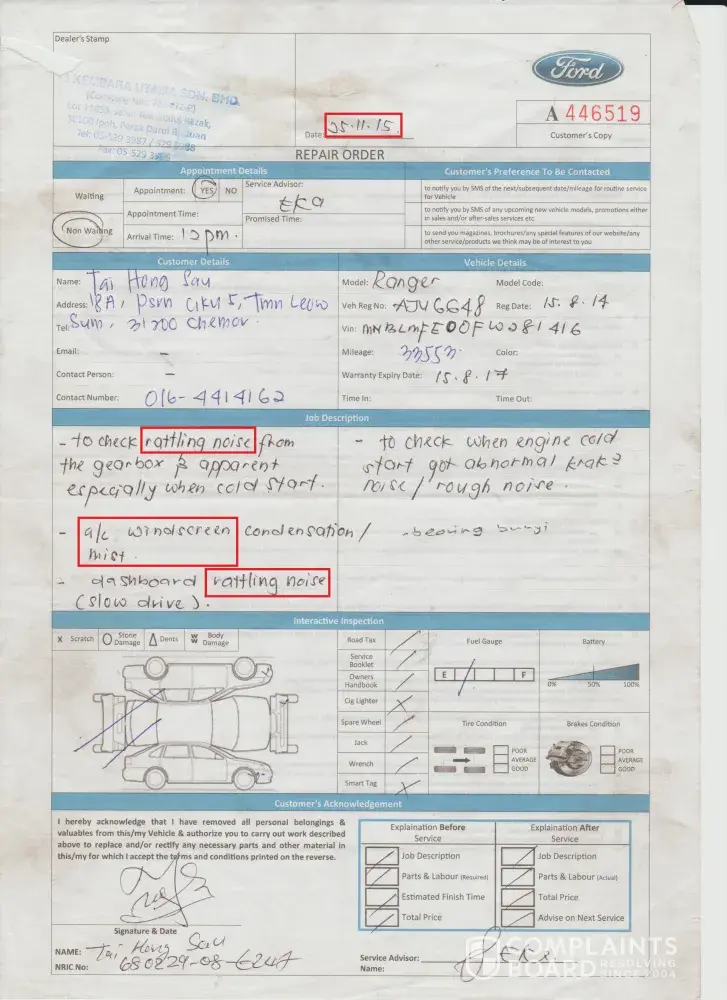 Dealer's Stamp
KEMBARA UTAMA SDN. BHD.
Ford
A 446519
Customer's Copy
Date: 25.11.15.
REPAIR ORDER
Appointment Details
Customer's Preference To Be Contacted
Waiting
Non Waiting
Appointment: YES NO
Appointment Time:
Arrival Time: 12pm.
Service Advisor:
EKA
Promised Time:
to notify you by SMS of the next/subsequent date/mileage for routine service
for Vehicle
to notify you by SMS of any upcoming new vehicle models, promotions either
in sales and/or after-sales services etc
to send you magazines, brochures/any special features of our website/any
other service/products we think may be of interest to you
Customer Details
Name: Tai Hong Sau
Address: 18A, Psrn Ciku 5, Tmn Leow
Tel: Sum, 31200 Chemor.
Email: -
Contact Person: -
Contact Number: 016-4414162
Vehicle Details
Model: Ranger Model Code:
Veh Reg No: AJU6648 Reg Date: 15.8.14
Vin: MNBLMFE00FW081416
Mileage: 33553. Color:
Warranty Expiry Date: 15.8.17
Time In: Time Out:
Job Description
- to check rattling noise from
the gearbox & apparent
especially when cold start.
- a/c windscreen condensation/
mist.
- dashboard rattling noise
(slow drive).
- to check when engine cold
start got abnormal krak2
noise/rough noise.
- bearing bunyi
Interactive Inspection
X Scratch
Stone Damage
Dents
W Body Damage
Road Tax
Service Booklet
Owners Handbook
Cig Lighter
Spare Wheel
Jack
Wrench
Smart Tag
Fuel Gauge
E F
Battery
0% 50% 100%
Tire Condition
POOR
AVERAGE
GOOD
Brakes Condition
POOR
AVERAGE
GOOD
Customer's Acknowledgement
I hereby acknowledge that I have removed all personal belongings &
valuables from this/my Vehicle & authorize you to carry out work described
above to replace and/or rectify any necessary parts and other material in
this/my for which I accept the terms and conditions printed on the reverse.
Signature & Date
NAME: Tai Hong Sau
NRIC No: 680229-08-6247
Explaination Before Service
Job Description
Parts & Labour (Required)
Estimated Finish Time
Total Price
Explaination After Service
Job Description
Parts & Labour (Actual)
Total Price
Advise on Next Service
Service Advisor: EKA
Name:
COMPLAINTS
BOARD RESOLVING
SINCE 2004